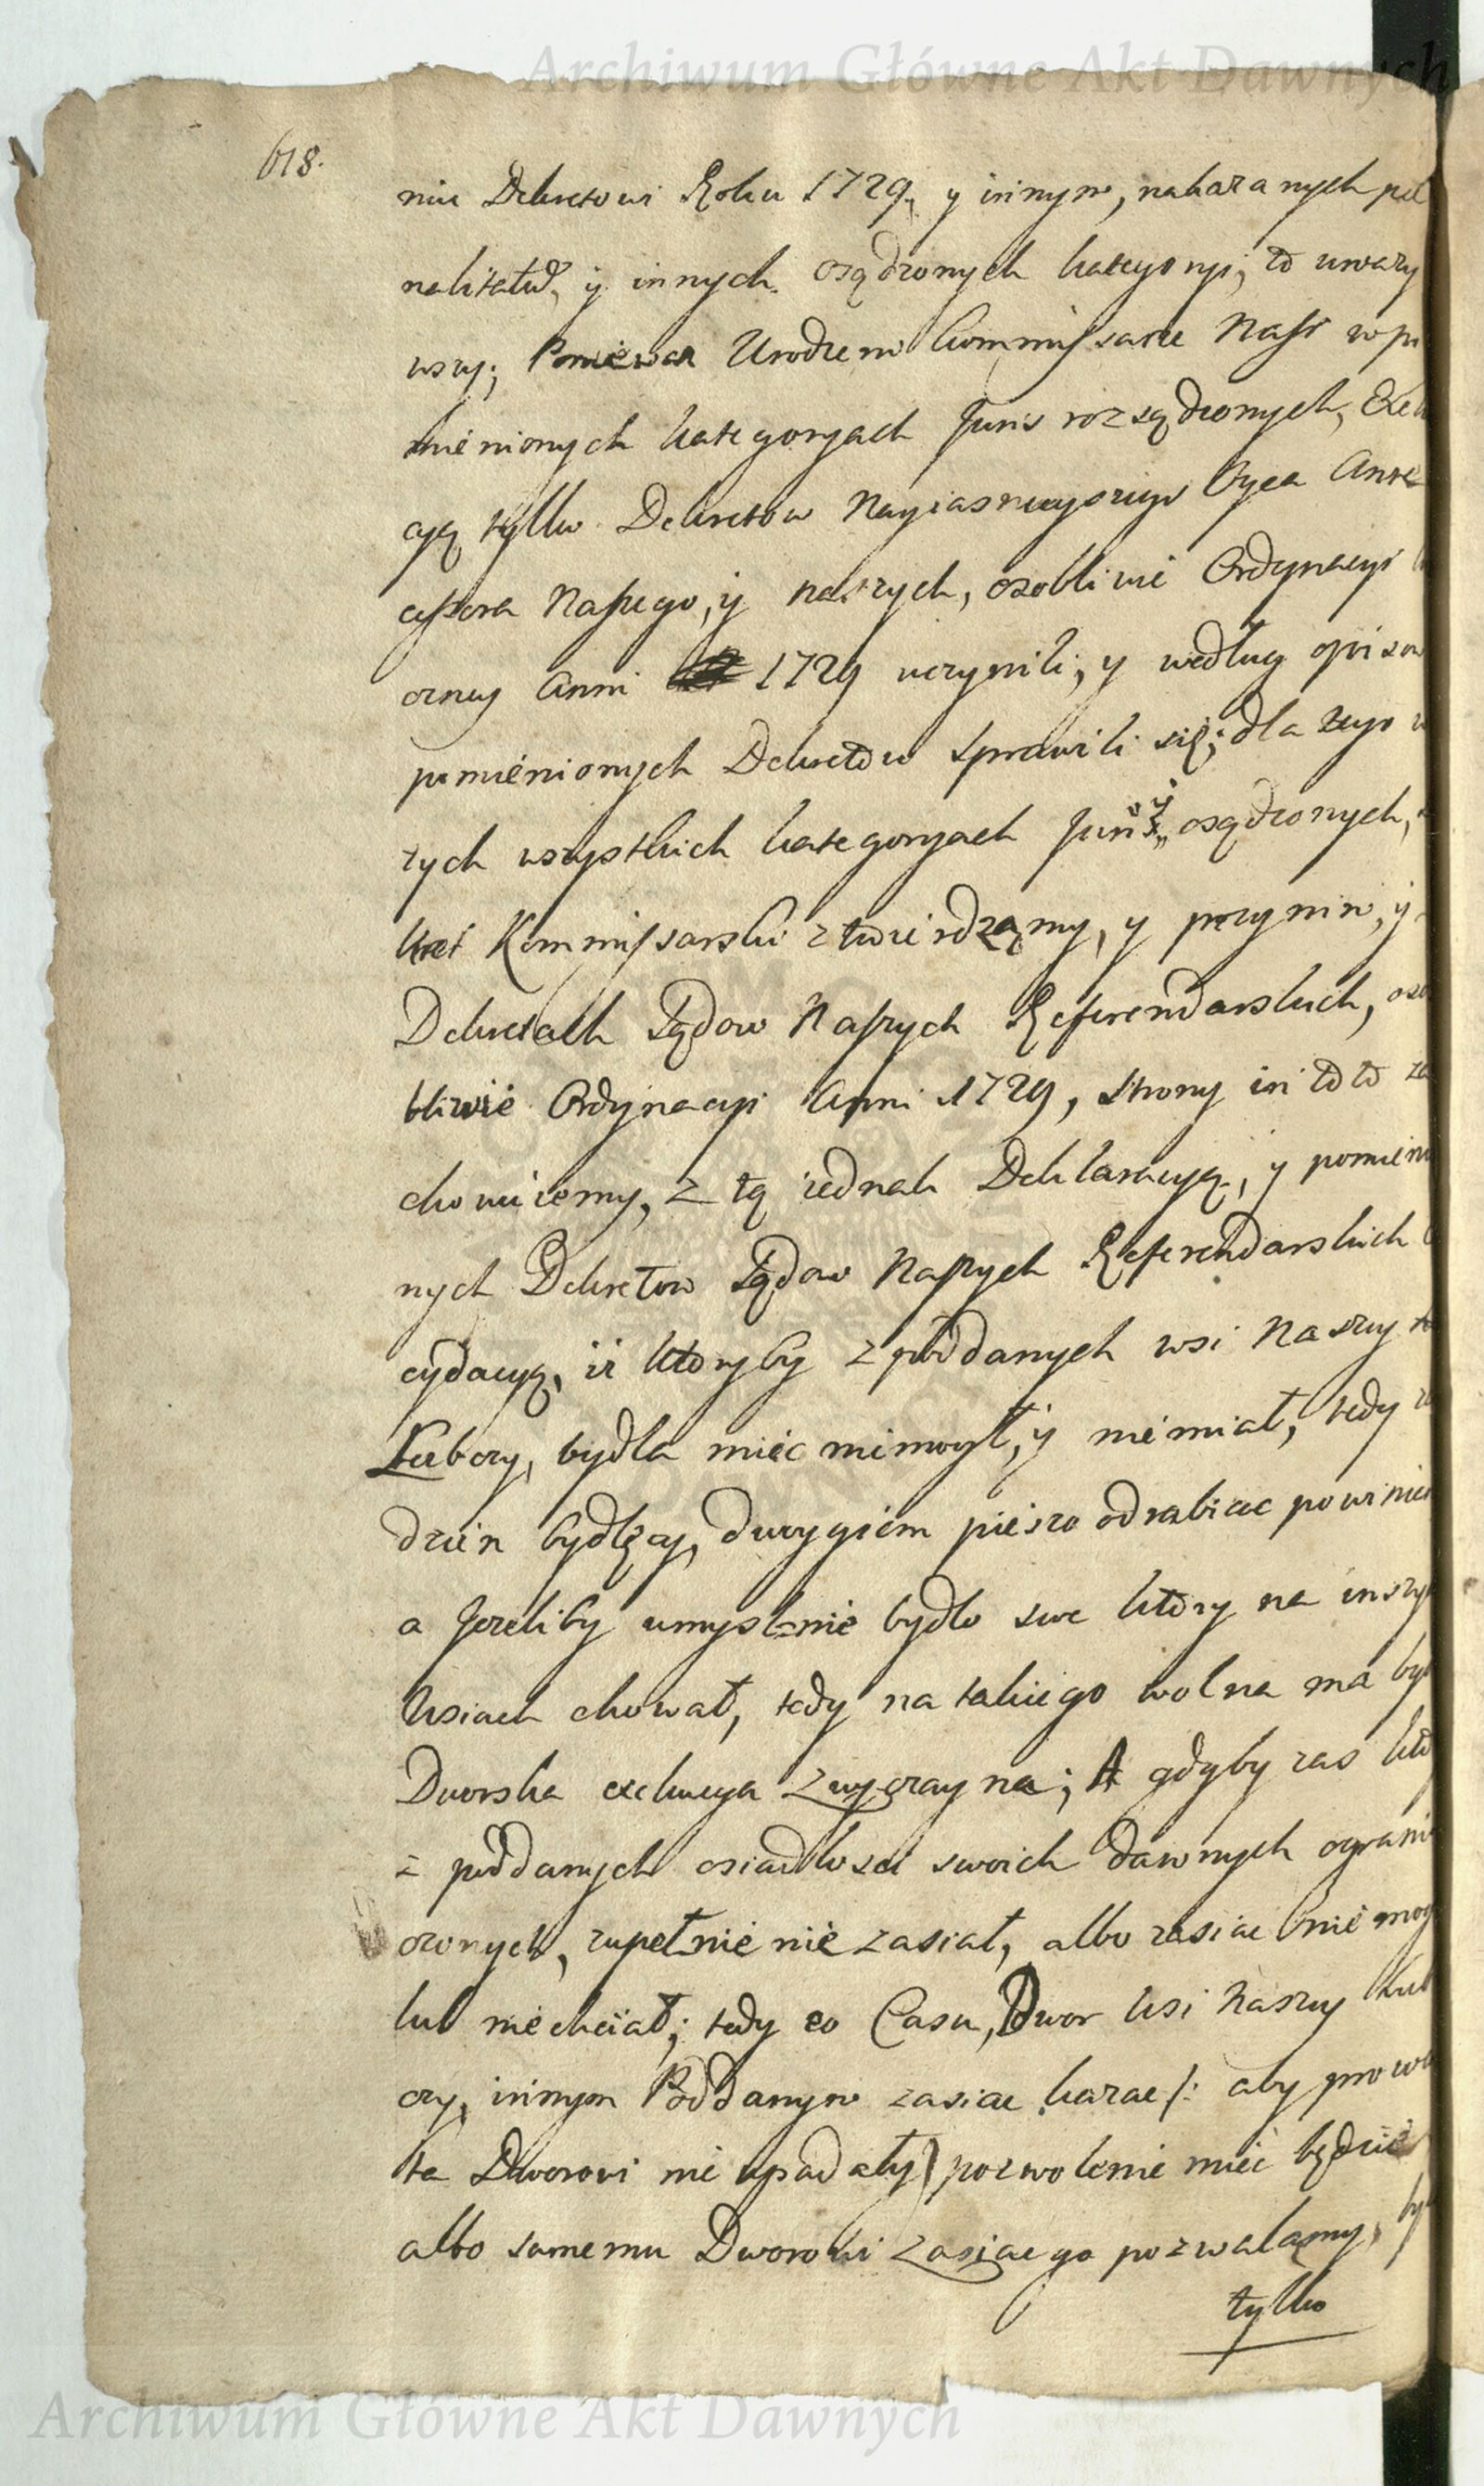 Archiwum Główne Akt Dawnych
618.
niu Dekretowi Roku 1729, y innym, nakazanych pœ
nalitatũ, y innych osądzonych kategoryi, to uwazy
wszy; Poniewaz Urodzeni Commissarze Nasi w po
mienionych kategoryach Juris rozsądzonych, Exeku
cyą tylko Dekretow Nayiasnieyszego Oyca Ante
cessora Naszego, y naszych, osobliwie Ordynacyi
czney Anni 1729 uczynili, y według opisow
pomienionych Dekretow sprawili się; dla tego w
tych wszystkich kategoryach Juris osądzonych,
kret Kommissarski ztwierdzamy, y przy nim, y
Dekretach Sądow Naszych Referendarskich, oso
bliwie Ordynacyi Anni 1729, strony in toto za
chowuiemy, z tą iednak Deklaracyą, y pomienio
nych Dekretow Sądow Naszych Referendarskich
cydacyą, iż ktoryby z poddanych wsi Naszey
Kubczy, bydła miec niemogł, y niemiał, tedy za
dzien bydlęcy, dwygiem pieszo odrabiac powinien
a Jezeliby umyslnie bydło swe ktory na inszych
Wsiach chował, tedy na takiego wolna ma być
Dworska exekucya zwyczayna; A gdyby zas kto
z poddanych osiadłosci swoich dawnych ograni
czonych, zupełnie nie zasiał, albo zasiac nie mogł
lub nie chciał; tedy eo Casu, Dwor Wsi Naszey Kub
czy, innym Poddanym zasiac kazac /: aby prowen
ta Dworowi nie upadały) pozwolenie miec będzie
albo samemu Dworowi zasiac go pozwalamy, by
tylko
Archiwum Główne Akt Dawnych